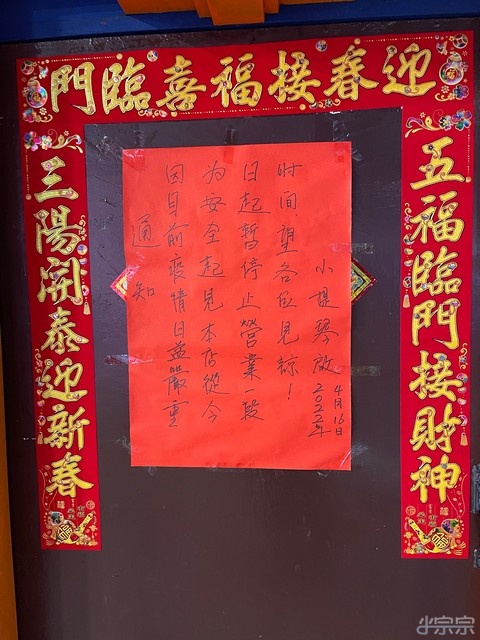 迎春接福喜臨門
五福臨門接財神
三陽開泰迎新春
通知
因目前疫情日益嚴重
为安全起見本店從今
日起暫停止營業段
时间,望各位見諒!
小提琴啟
2022年
4月16日
小宗宗